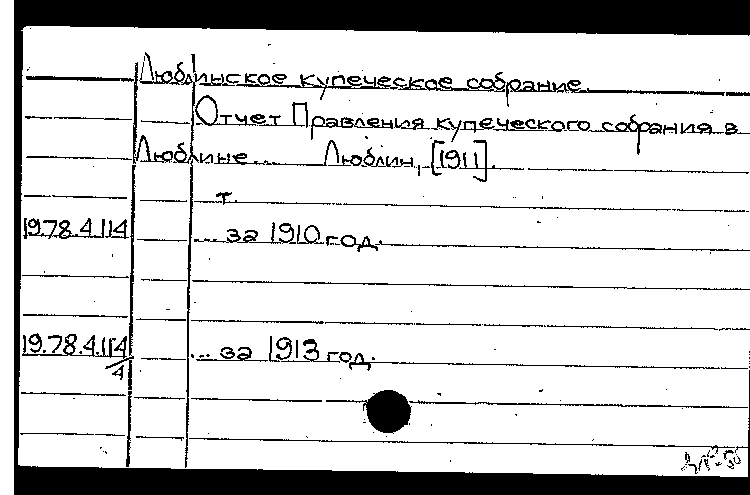 Люблинское купеческое собрание.
Отчет Правления купеческого собрания в
Люблине... Люблин, [1911].
т.
19.78.4.114 ... за 1910 год.
19.78.4.114/4 ... за 1913 год.